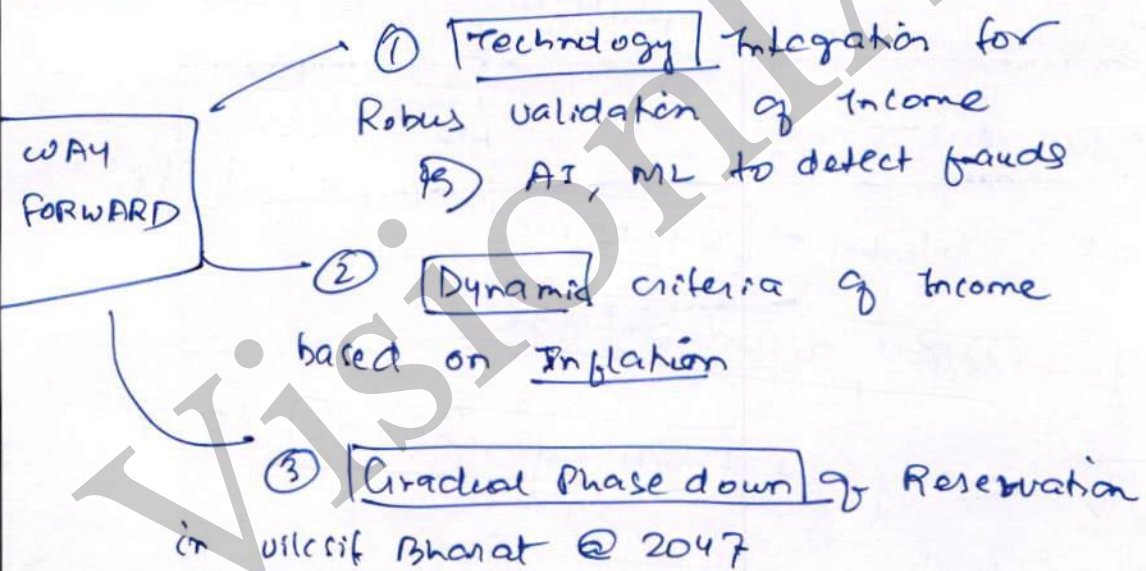 ① Technology Integration for
Robus validation of Income
AI, ML to detect frauds
WAY
FORWARD
② Dynamic criteria of Income
based on Inflation
③ Gradual Phase down of Reservation
in Viksit Bharat @ 2047
Vision